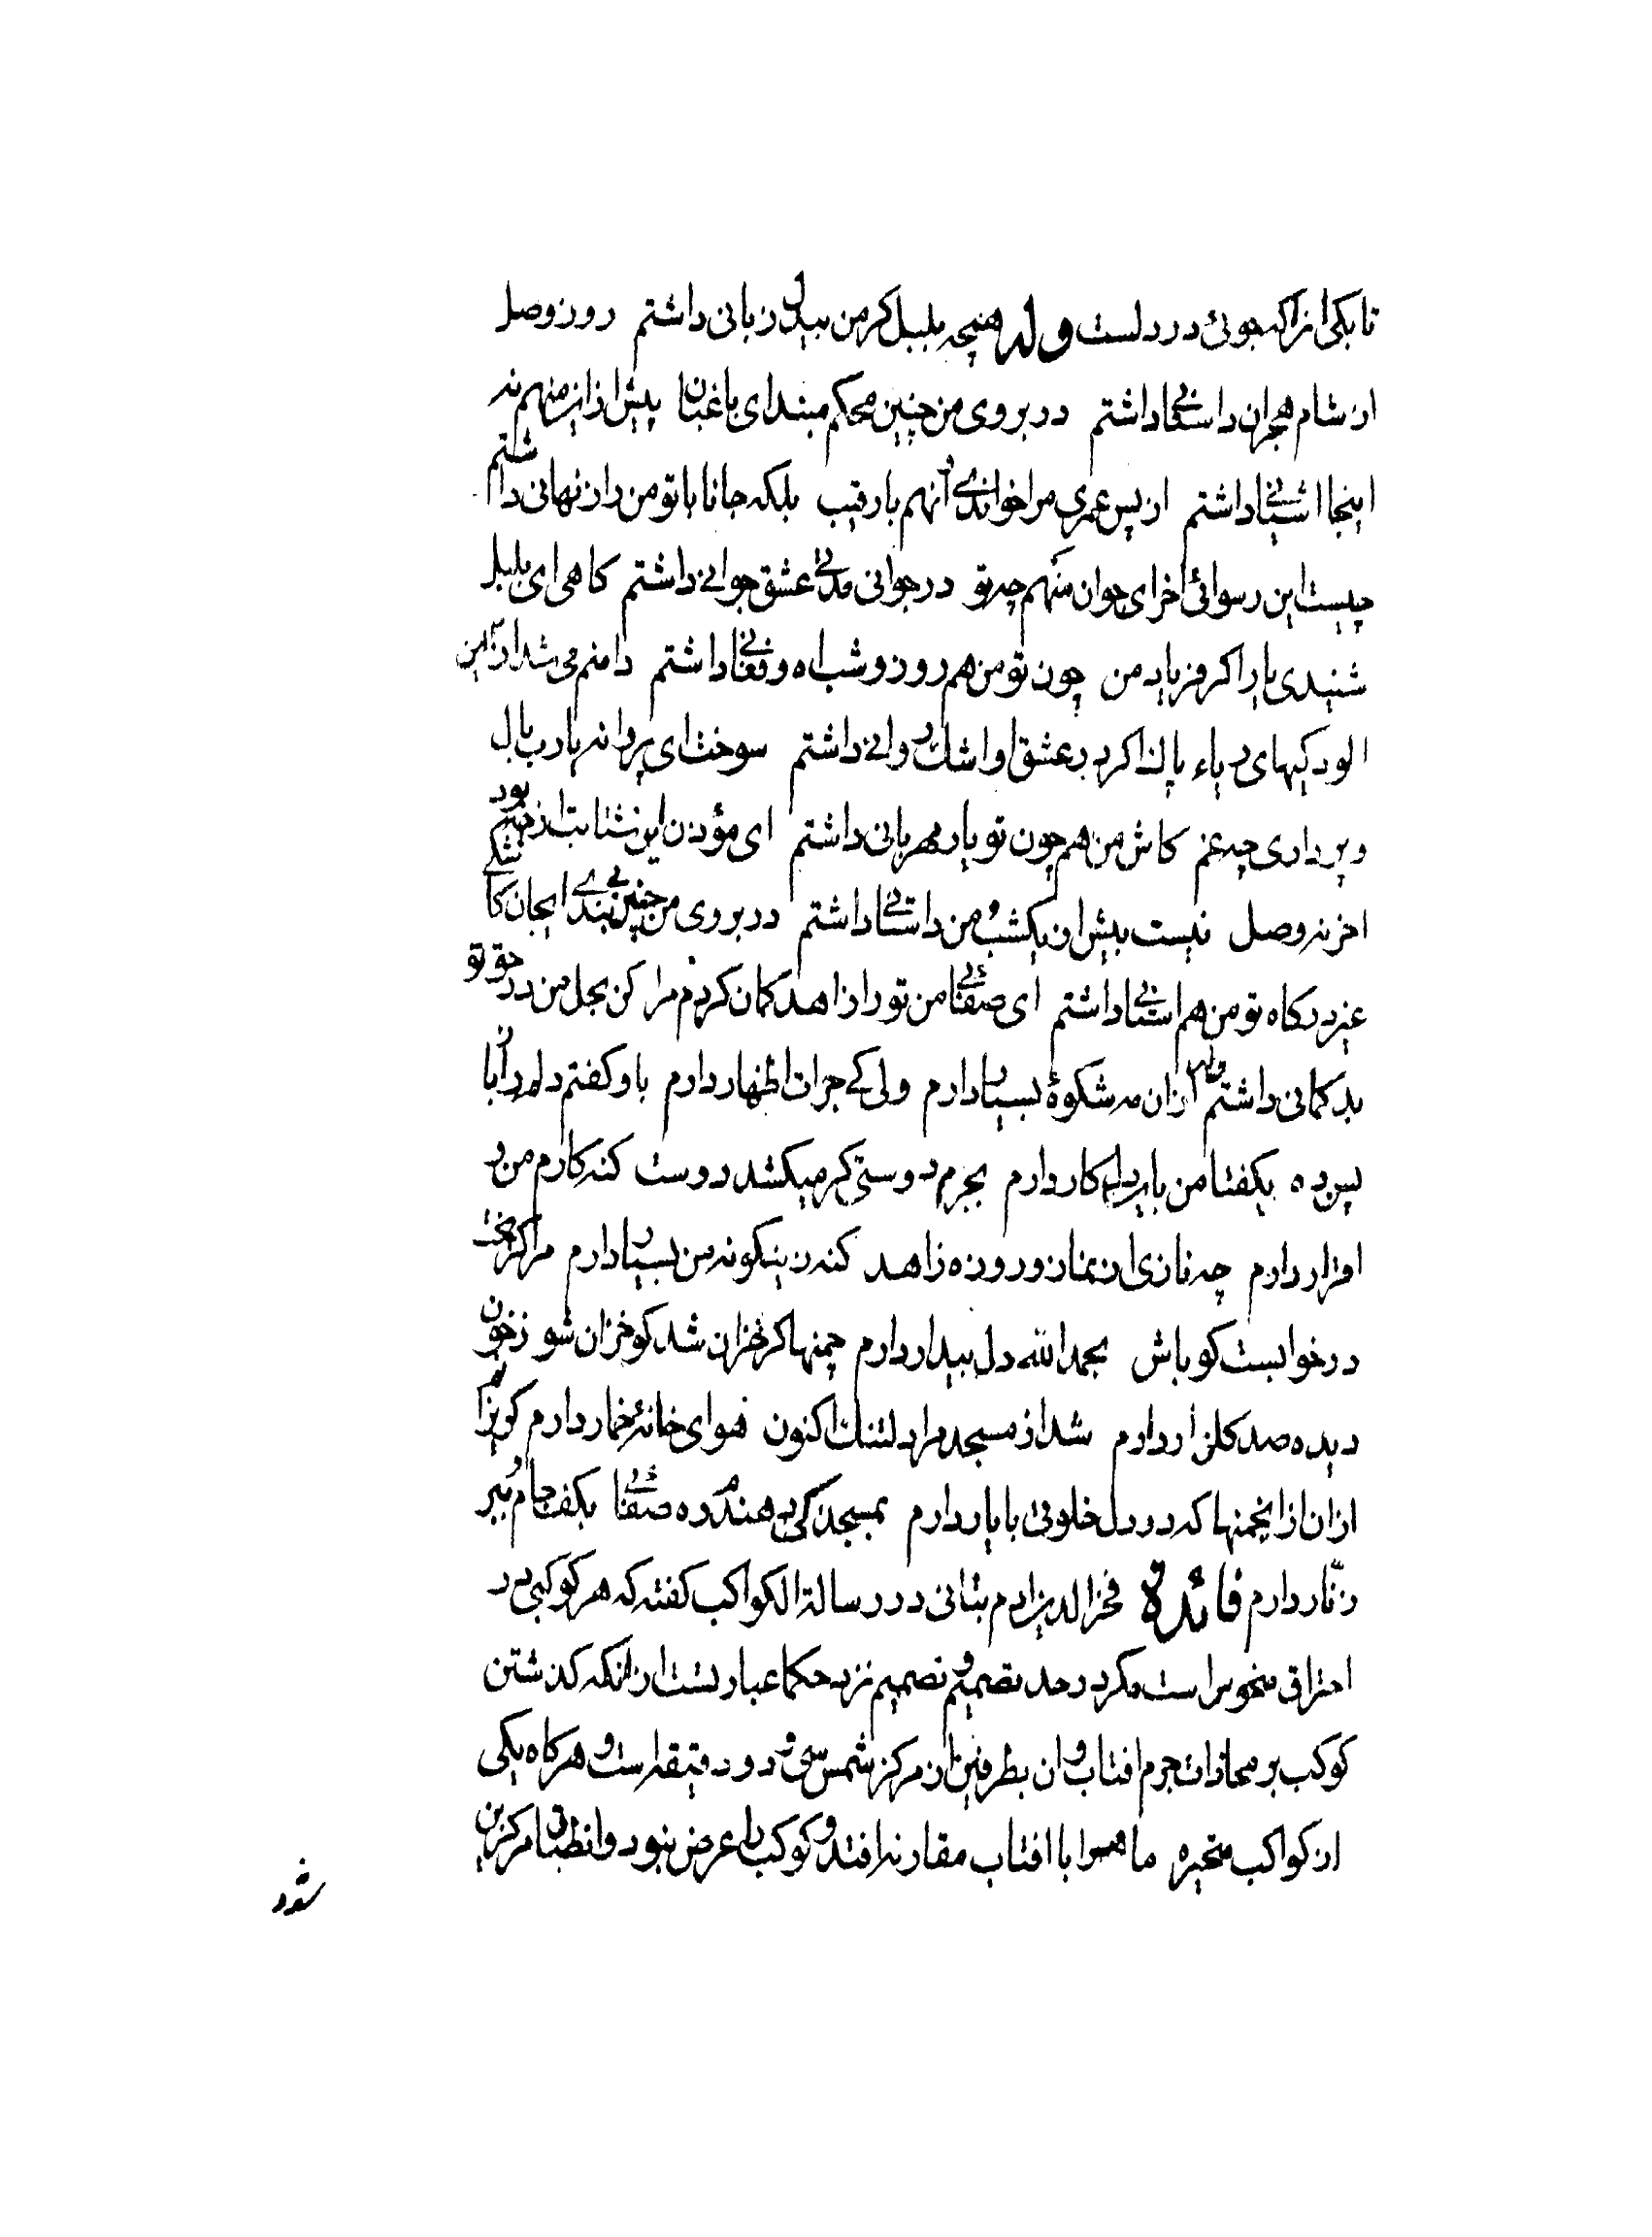 تا بکی انرا که جوئی در دلست وله همچه بلبل کر من بیدل زبانی داشتم روز وصل
از شام هجران داستانی داشتم در بروی من چنین محکم مبند ای باغبان پیش از این منهم در
اینجا اشیانی داشتم از پس عمری مرا خواندی و آنهم با رقیب بلکه جانا با تو من راز نهانی داشتم
چیست این رسوائی اخر ای جوان منهم چه تو در جوانی مدتی عشق جوانی داشتم کاهی ای بلبل
شنیدی یار اکر فریاد من چون تو من هم روز و شب اه و فغانی داشتم دامنم می شد از این
الودکیهای ریاء پاک اکر در عشق او اشک روانی داشتم سوخت ای پروانه یارب بال
و پر داری چه غم کاش من هم چون تو یار مهربانی داشتم ای مؤذن این شتابت از چه بود
اخر نه وصل نیست بیش از یکشب و من داستانی داشتم در بروی من چنین بندی ایجان کا
غیر درکاه تو من هم استانی داشتم ای صفائی من تو را زاهد کمان کردم مرا کن بحل من در حق تو
بد کمانی داشتم وله از ان مه شکوهٔ بسیار دارم ولی کی جرات اظهار دارم باو کفتم دلم را
پس ده بکفتا من باین دل کار دارم بجرم دوستی کر میکشد دوست کنه کارم من و
اقرار دارم چه نازی از نماز و روزه زاهد کنه زینکونه من بسیار دارم مرا کر بخت
در خوابست کو باش بحمدالله دل بیدار دارم چمنها کر خزان شد کو خزان شو ز خون
دیده صد کلزار دارم شد از مسجد مرا دلتنک اکنون هوای خانهٔ خمار دارم
از ان از انجمنها که در دل خلوتی با یار دارم بمسجد کی دهندم ره صفائی بکف جام و ببر
زنّار دارم فائدة فخر الدین ادم ثانی در رسالة الکواکب کفته که هر کوکبی در
احتراق منحوس است مکر در حد تصمیم و تصمیم نزد حکما عبارتست از انکه کذشتن
کوکب بر محاذات جرم افتاب و ان بطرفین از مرکز شمس سی و دو دقیقه است و هر کاه یکی
از کواکب متحیره ما همرا با افتاب مقارنه افتد و کوکب را عرض نبود و انطباق مرکزین
شود